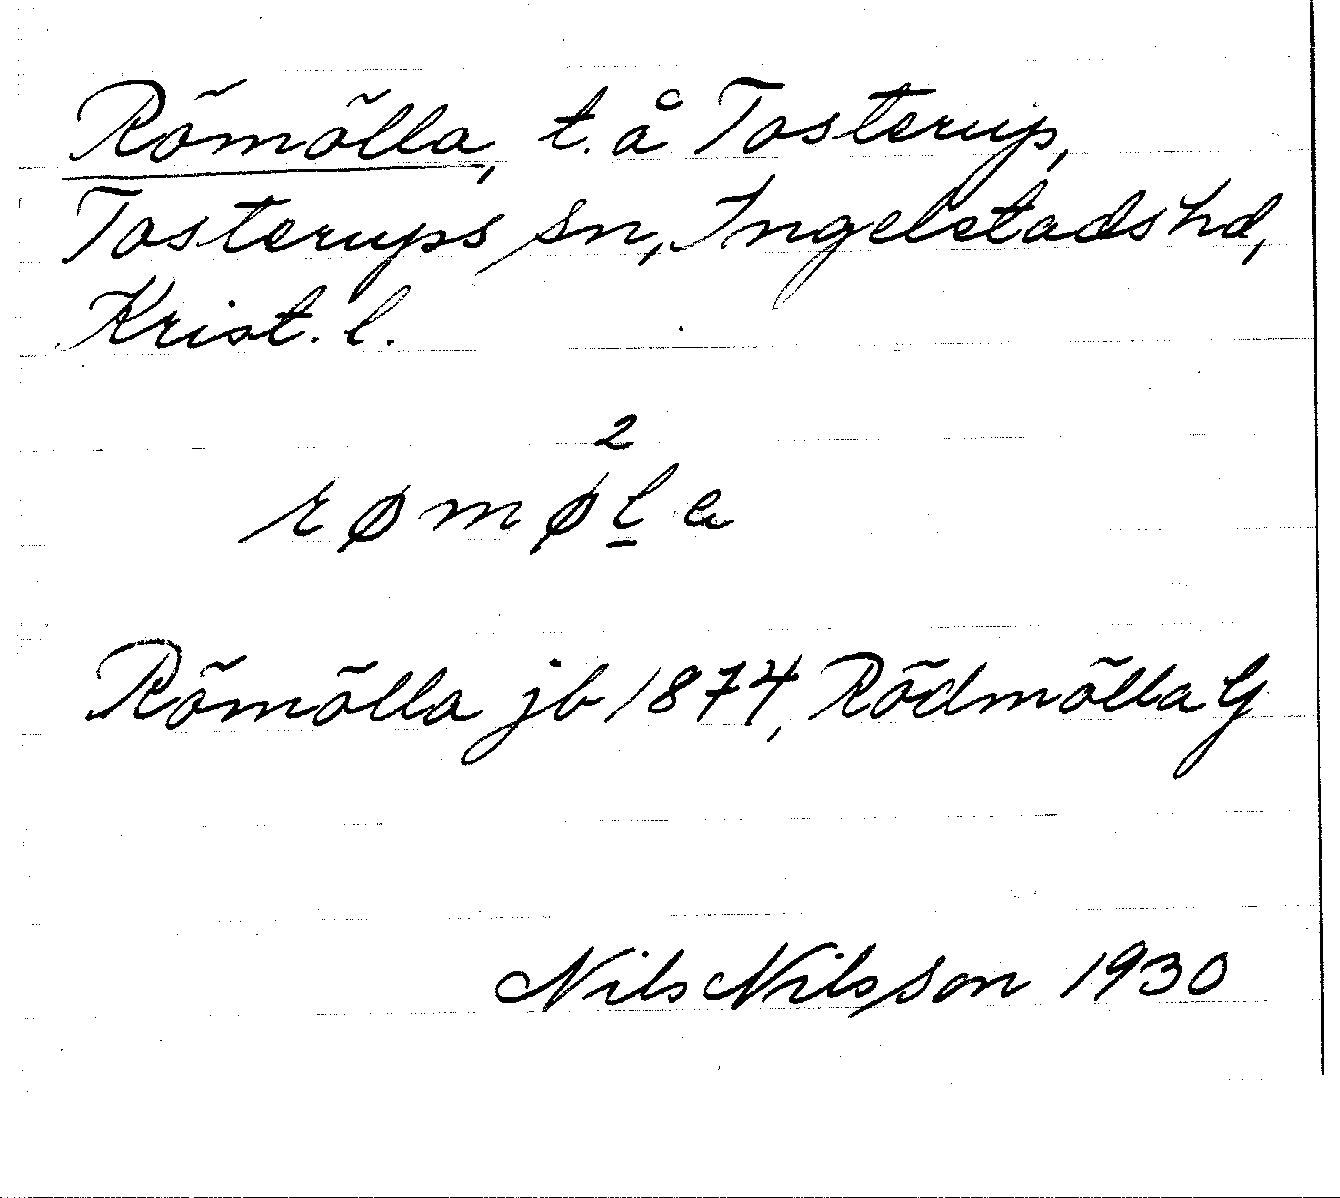 Römölla, t. å Tosterup,
Tosterups sn, Ingelstads hd,
Krist. l.
2
rømøl̲a
Römölla jb 1874, Rödmölla G
Nils Nilsson 1930